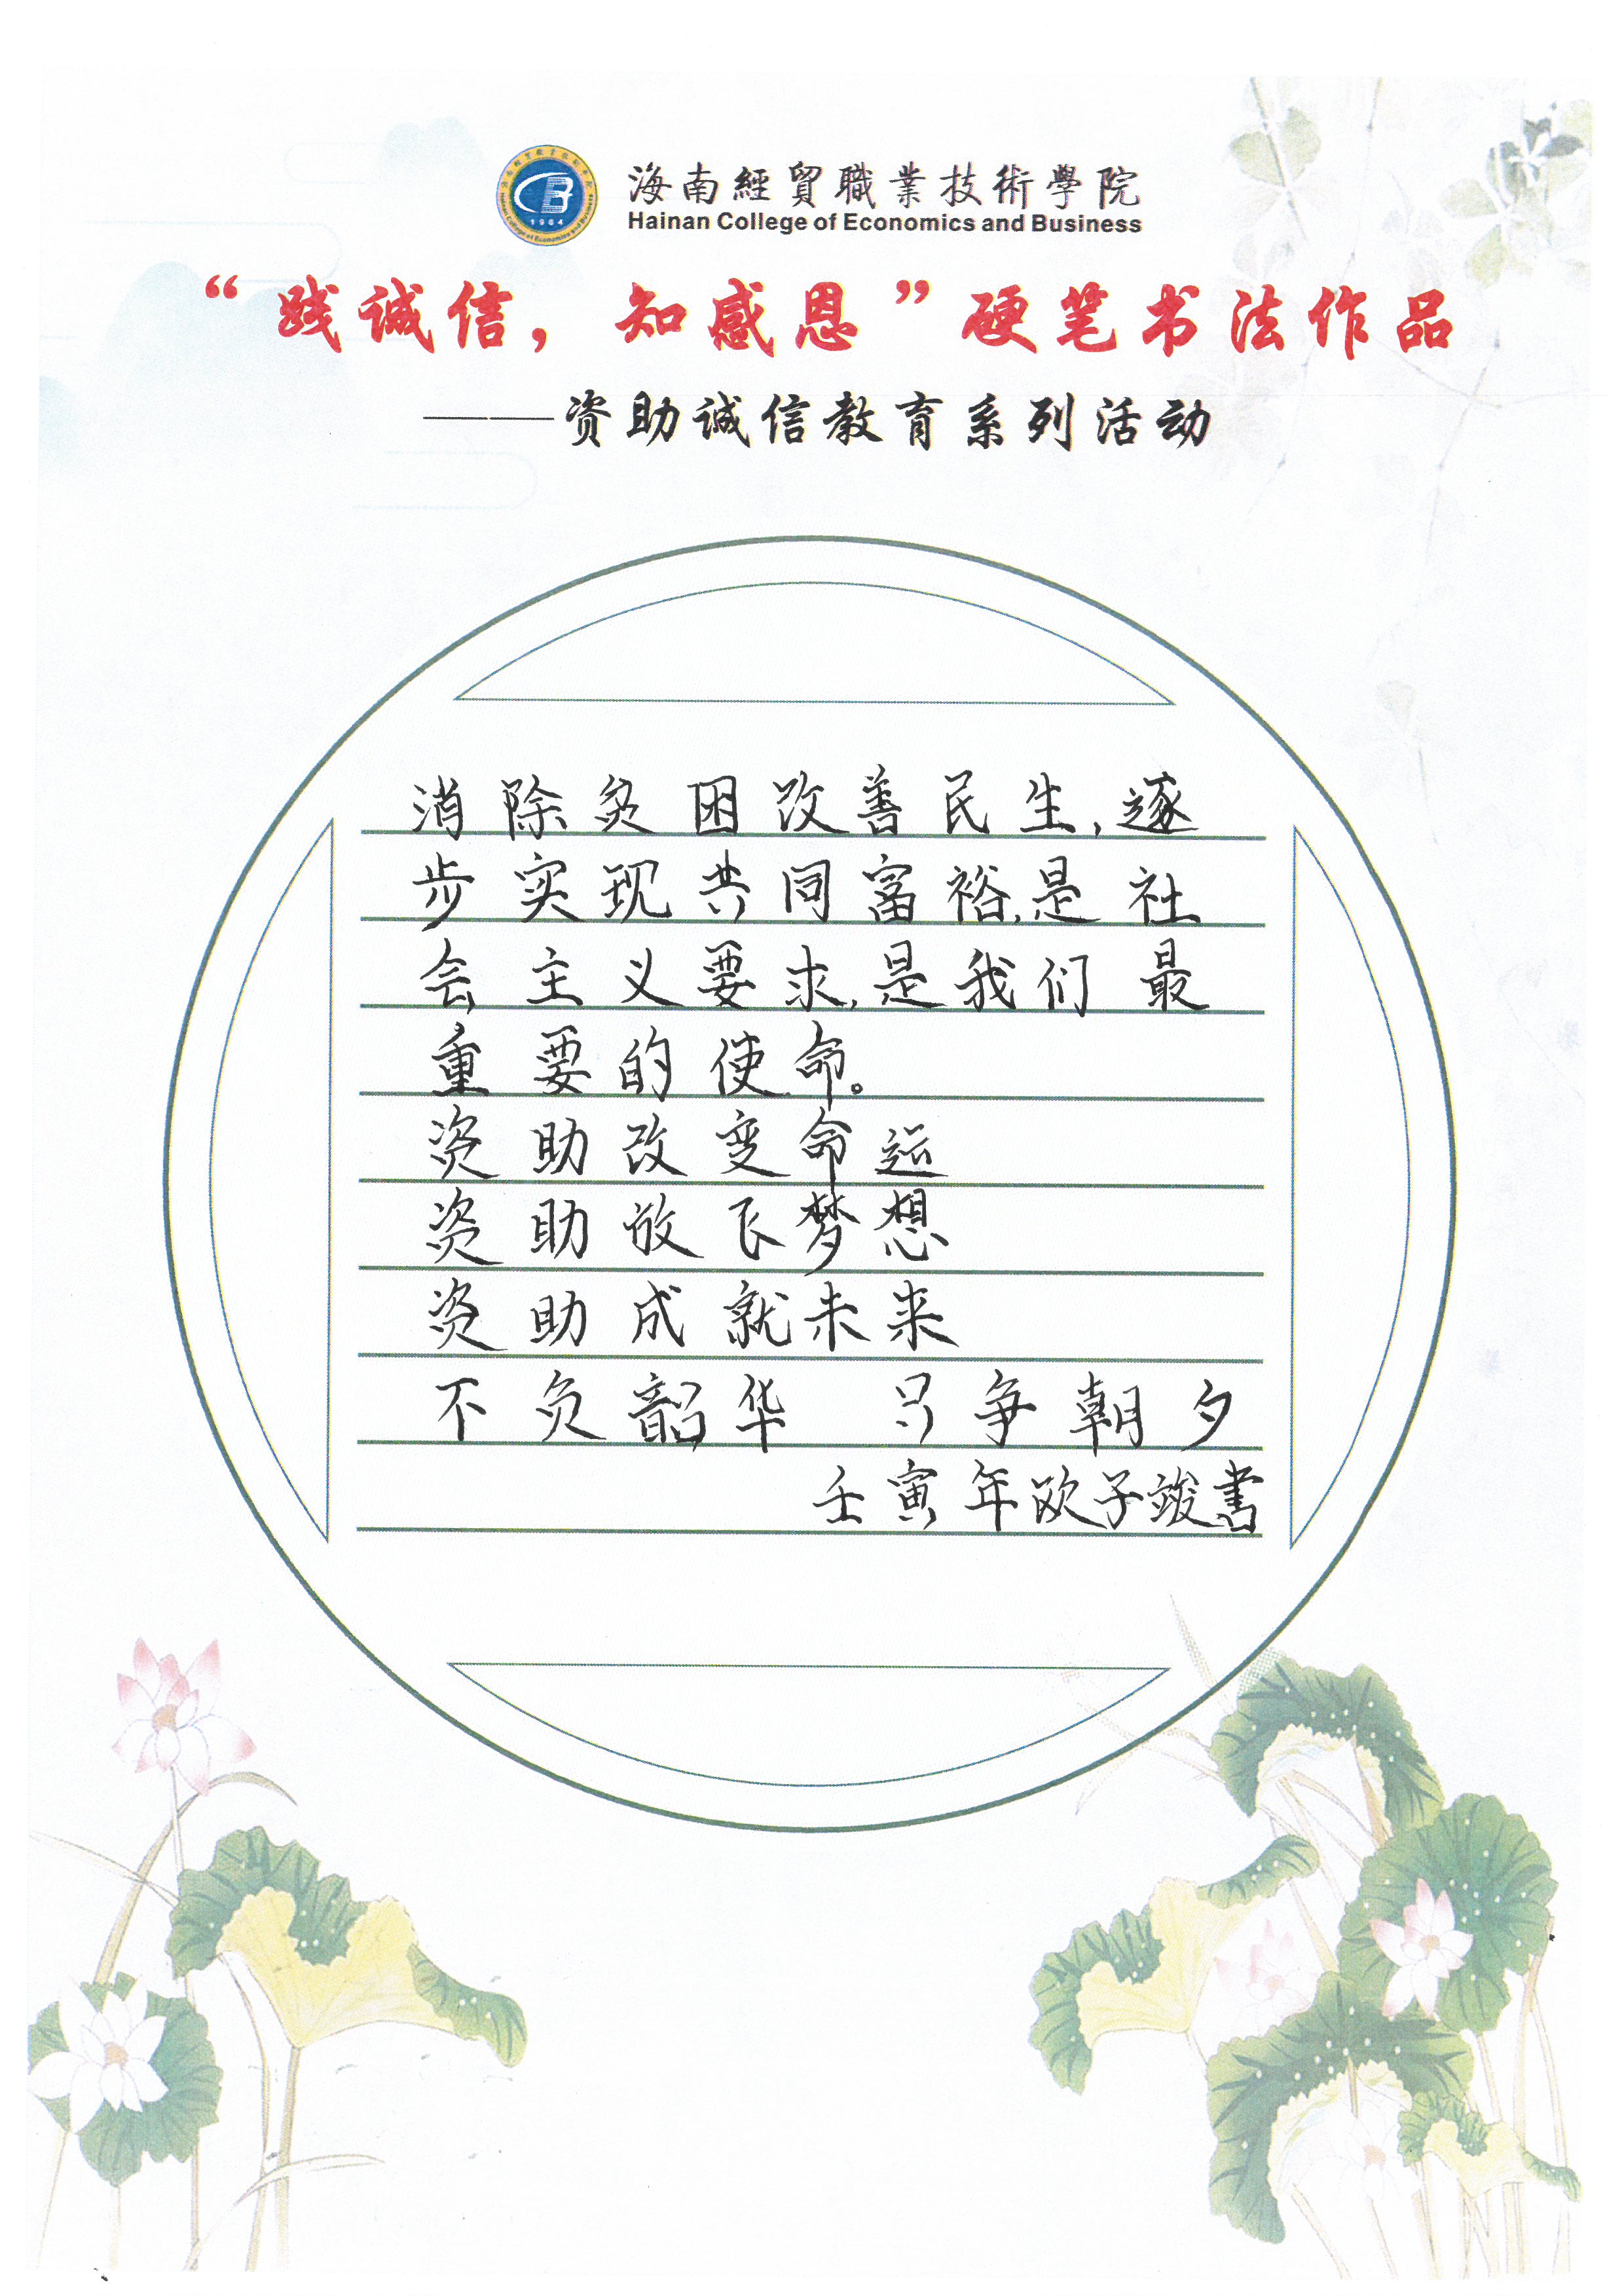 海南經貿職業技術學院
Hainan College of Economics and Business
“践诚信，知感恩”硬笔书法作品
——资助诚信教育系列活动
消除贫困改善民生，逐
步实现共同富裕，是社
会主义要求，是我们最
重要的使命。
资助改变命运
资助放飞梦想
资助成就未来
不负韶华 只争朝夕
壬寅年欧子竣書